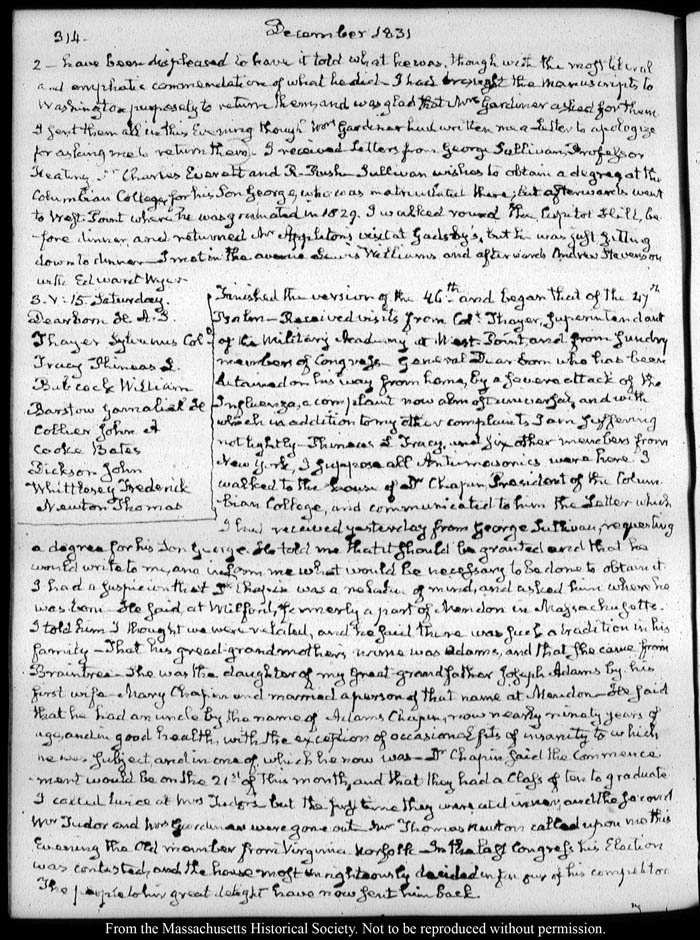 314.
December 1831
2 — have been displeased to have it told what he was, though with the most liberal
and emphatic commendation of what he did — I had brought the Manuscripts to
Washington purposely to return them, and was glad that Mrs Gardiner asked for them
I sent them all in this Evening though Mrs Gardiner had written me a Letter to apologize
for asking me to return them — I received Letters from George Sullivan, Professor
Keating, Dr Charles Everett and R. Rush — Sullivan wishes to obtain a degree at the
Columbian College, for his Son George, who was matriculated there; but afterwards went
to West-Point where he was graduated in 1829. I walked round the Capitol Hill, be
fore dinner, and returned Mr Appleton's visit at Gadsby's, but he was just sitting
down to dinner — I met in the avenue Lewis Williams and afterwards Andrew Stevenson
with Edward Wyer
3. V: 15. Saturday.
Dearborn H. A. S.
Thayer Sylvanus Colo
Tracy Phineas L.
Babcock William
Barstow Gamaliel H
Collier John A
Cooke Bates
Dickson John
Whittlesey Frederick
Newton Thomas
Finished the version of the 46th and began that of the 47th
Psalm — Received visits from Colo Thayer, Superintendant
of the Military Academy at West Point, and from sundry
members of Congress — General Dearborn who has been
detained on his way from home, by a severe attack of the
Influenza, a complaint now almost universal, and with
which in addition to my other complaints I am suffering
not lightly — Phineas L Tracy, and six other members from
New York, I suppose all Antimasonics were here. I
walked to the house of Dr Chapin President of the Colum
bian College, and communicated to him the Letter which
I had received yesterday from George Sullivan, requesting
a degree for his Son George. He told me that it should be granted and that he
would write to me, and inform me what would be necessary to be done to obtain it
I had a suspicion that Dr Chapin was a relation of mine, and asked him where he
was born — He said, at Milford, formerly a part of Mendon in Massachusetts.
I told him I thought we were related, and he said there was such a tradition in his
family — That his great-grandmother's name was Adams, and that she came from
Braintree — She was the daughter of my great grandfather Joseph Adams by his
first wife — Mary Chapin and married a person of that name at Mendon — He said
that he had an uncle by the name of Adams Chapin, now nearly ninety years of
age, and in good health, with the exception of occasional fits of insanity to which
he was subject, and in one of which he now was — Dr Chapin said the Commence
ment would be on the 21st of this month, and that they had a Class of ten to graduate
I called twice at Mrs Tudor's but the first time they were at dinner, and the second
Mrs Tudor and Mrs Gardiner were gone out. Mr Thomas Newton called upon me this
Evening the Old member from Virginia Norfolk — In the last Congress his Election
was contested, and the house most unrighteously decided in favour of his competitor
The people to his great delight have now sent him back
From the Massachusetts Historical Society. Not to be reproduced without permission.